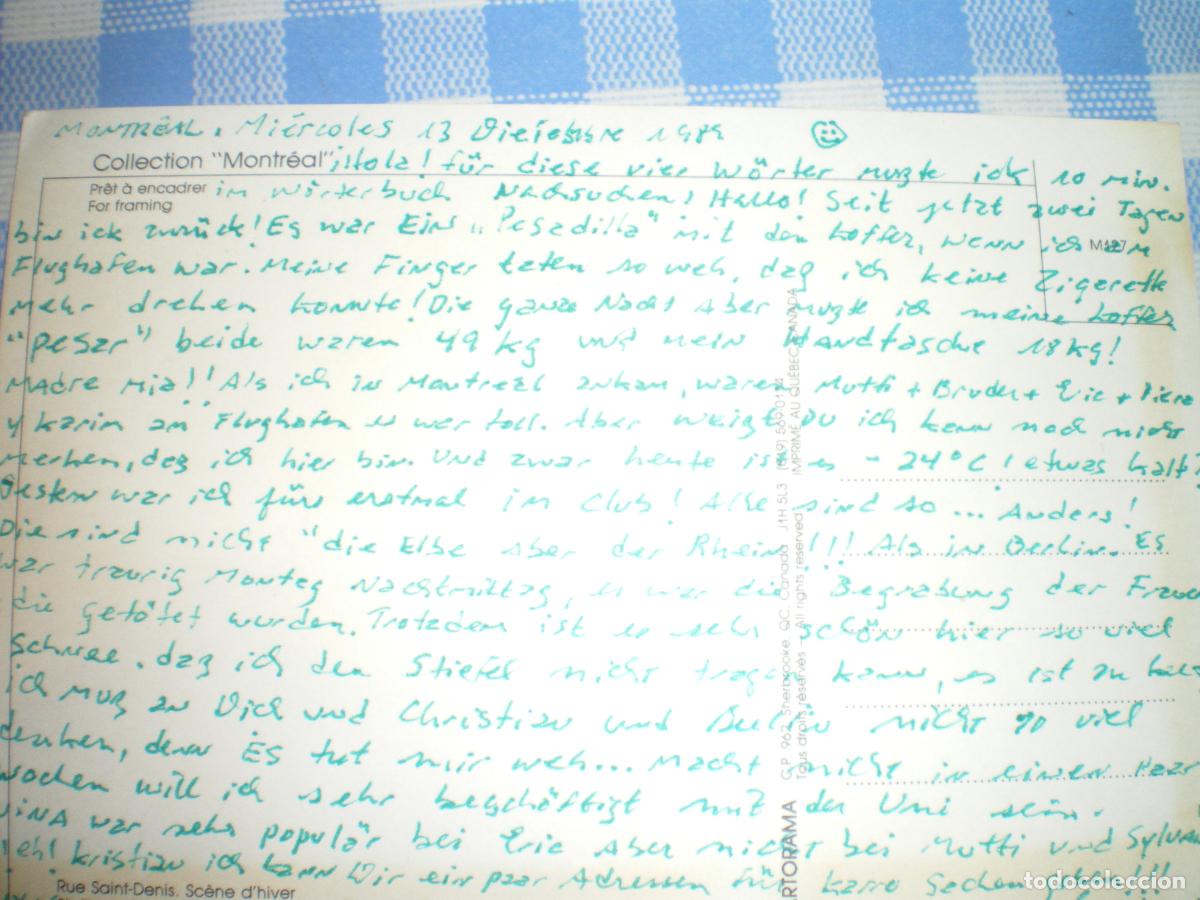 MONTRÉAL, Miércoles 13 Diciembre 1989
Collection "Montréal" ¡Hola! für diese vier Wörter mußte ich 10 min.
Prêt à encadrer
For framing
im Wörterbuch Nachsuchen! Hallo! Seit jetzt zwei Tagen
bin ick zurück! Es war EIN „Pesadilla" mit den Koffer, wenn ich am
M127
Flughafen war. Meine Finger taten so weh, daß ich keine Zigarette
mehr drehen konnte! Die ganze Nacht Aber mußte ich meine Koffer
"pesar" beide waren 49 kg und mein Handtasche 18 kg!
Madre mia!! Als ich in Montreal ankam, waren Mutti + Bruder + Eric +
y Karim am Flughafen es war toll. Aber weißt Du ich kann noch nicht
merken, daß ich hier bin. Und zwar heute ist es - 24°C! etwas kalt?
Gestern war ich fürs erstmal im Club! Alle sind so ... Anders!
Die sind nicht "die Elbe aber der Rhein"!!! Als in Berlin. Es
war traurig Montag Nachtmittag, es war die Begrabung der Frauen
die getötet wurden. Trotzdem ist es sehr schön hier so viel
Schnee. daß ich den Stiefel nicht tragen kann, es ist zu kalt
ich muß an Dich und Christian und Berlin nicht so viel
denken, denn Es tut mir weh... Macht nichts in einen Paar
wochen will ich sehr beschäftigt mit der Uni sein.
war sehr populär bei Eric aber nicht bei Mutti und Sylvain
eh! Kristian ich kann Dir ein paar Adressen für Sachen !!!
Rue Saint-Denis. Scène d'hiver
ARTORAMA G.P. 962, Sherbrooke, QC. Canada J1H 5L3 (819) 569 IMPRIMÉ AU QUÉBEC, CANADA
Tous droits réservés — All rights reserved
todocoleccion